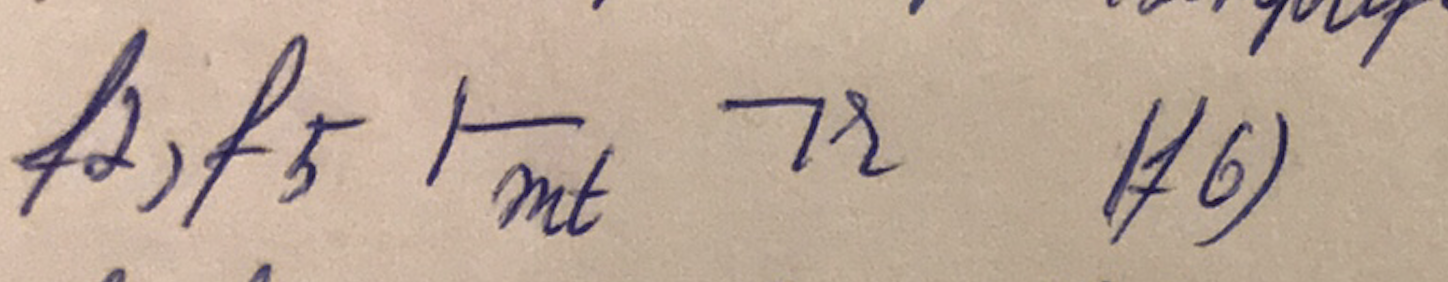 f2, f5 ⊢mt ¬r (f6)